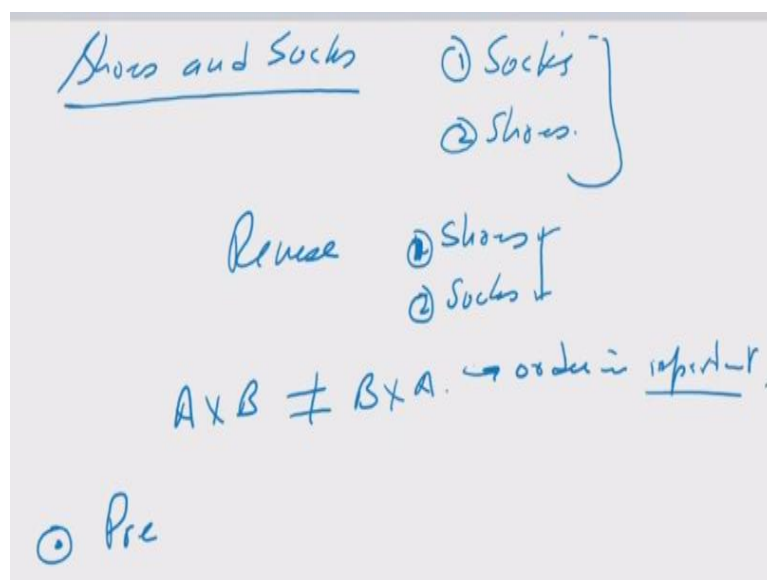 Shoes and Socks ① Socks
② Shoes.
Reverse ① Shoes
② Socks
A X B ≠ B X A. → order is important.
⊙ Pre